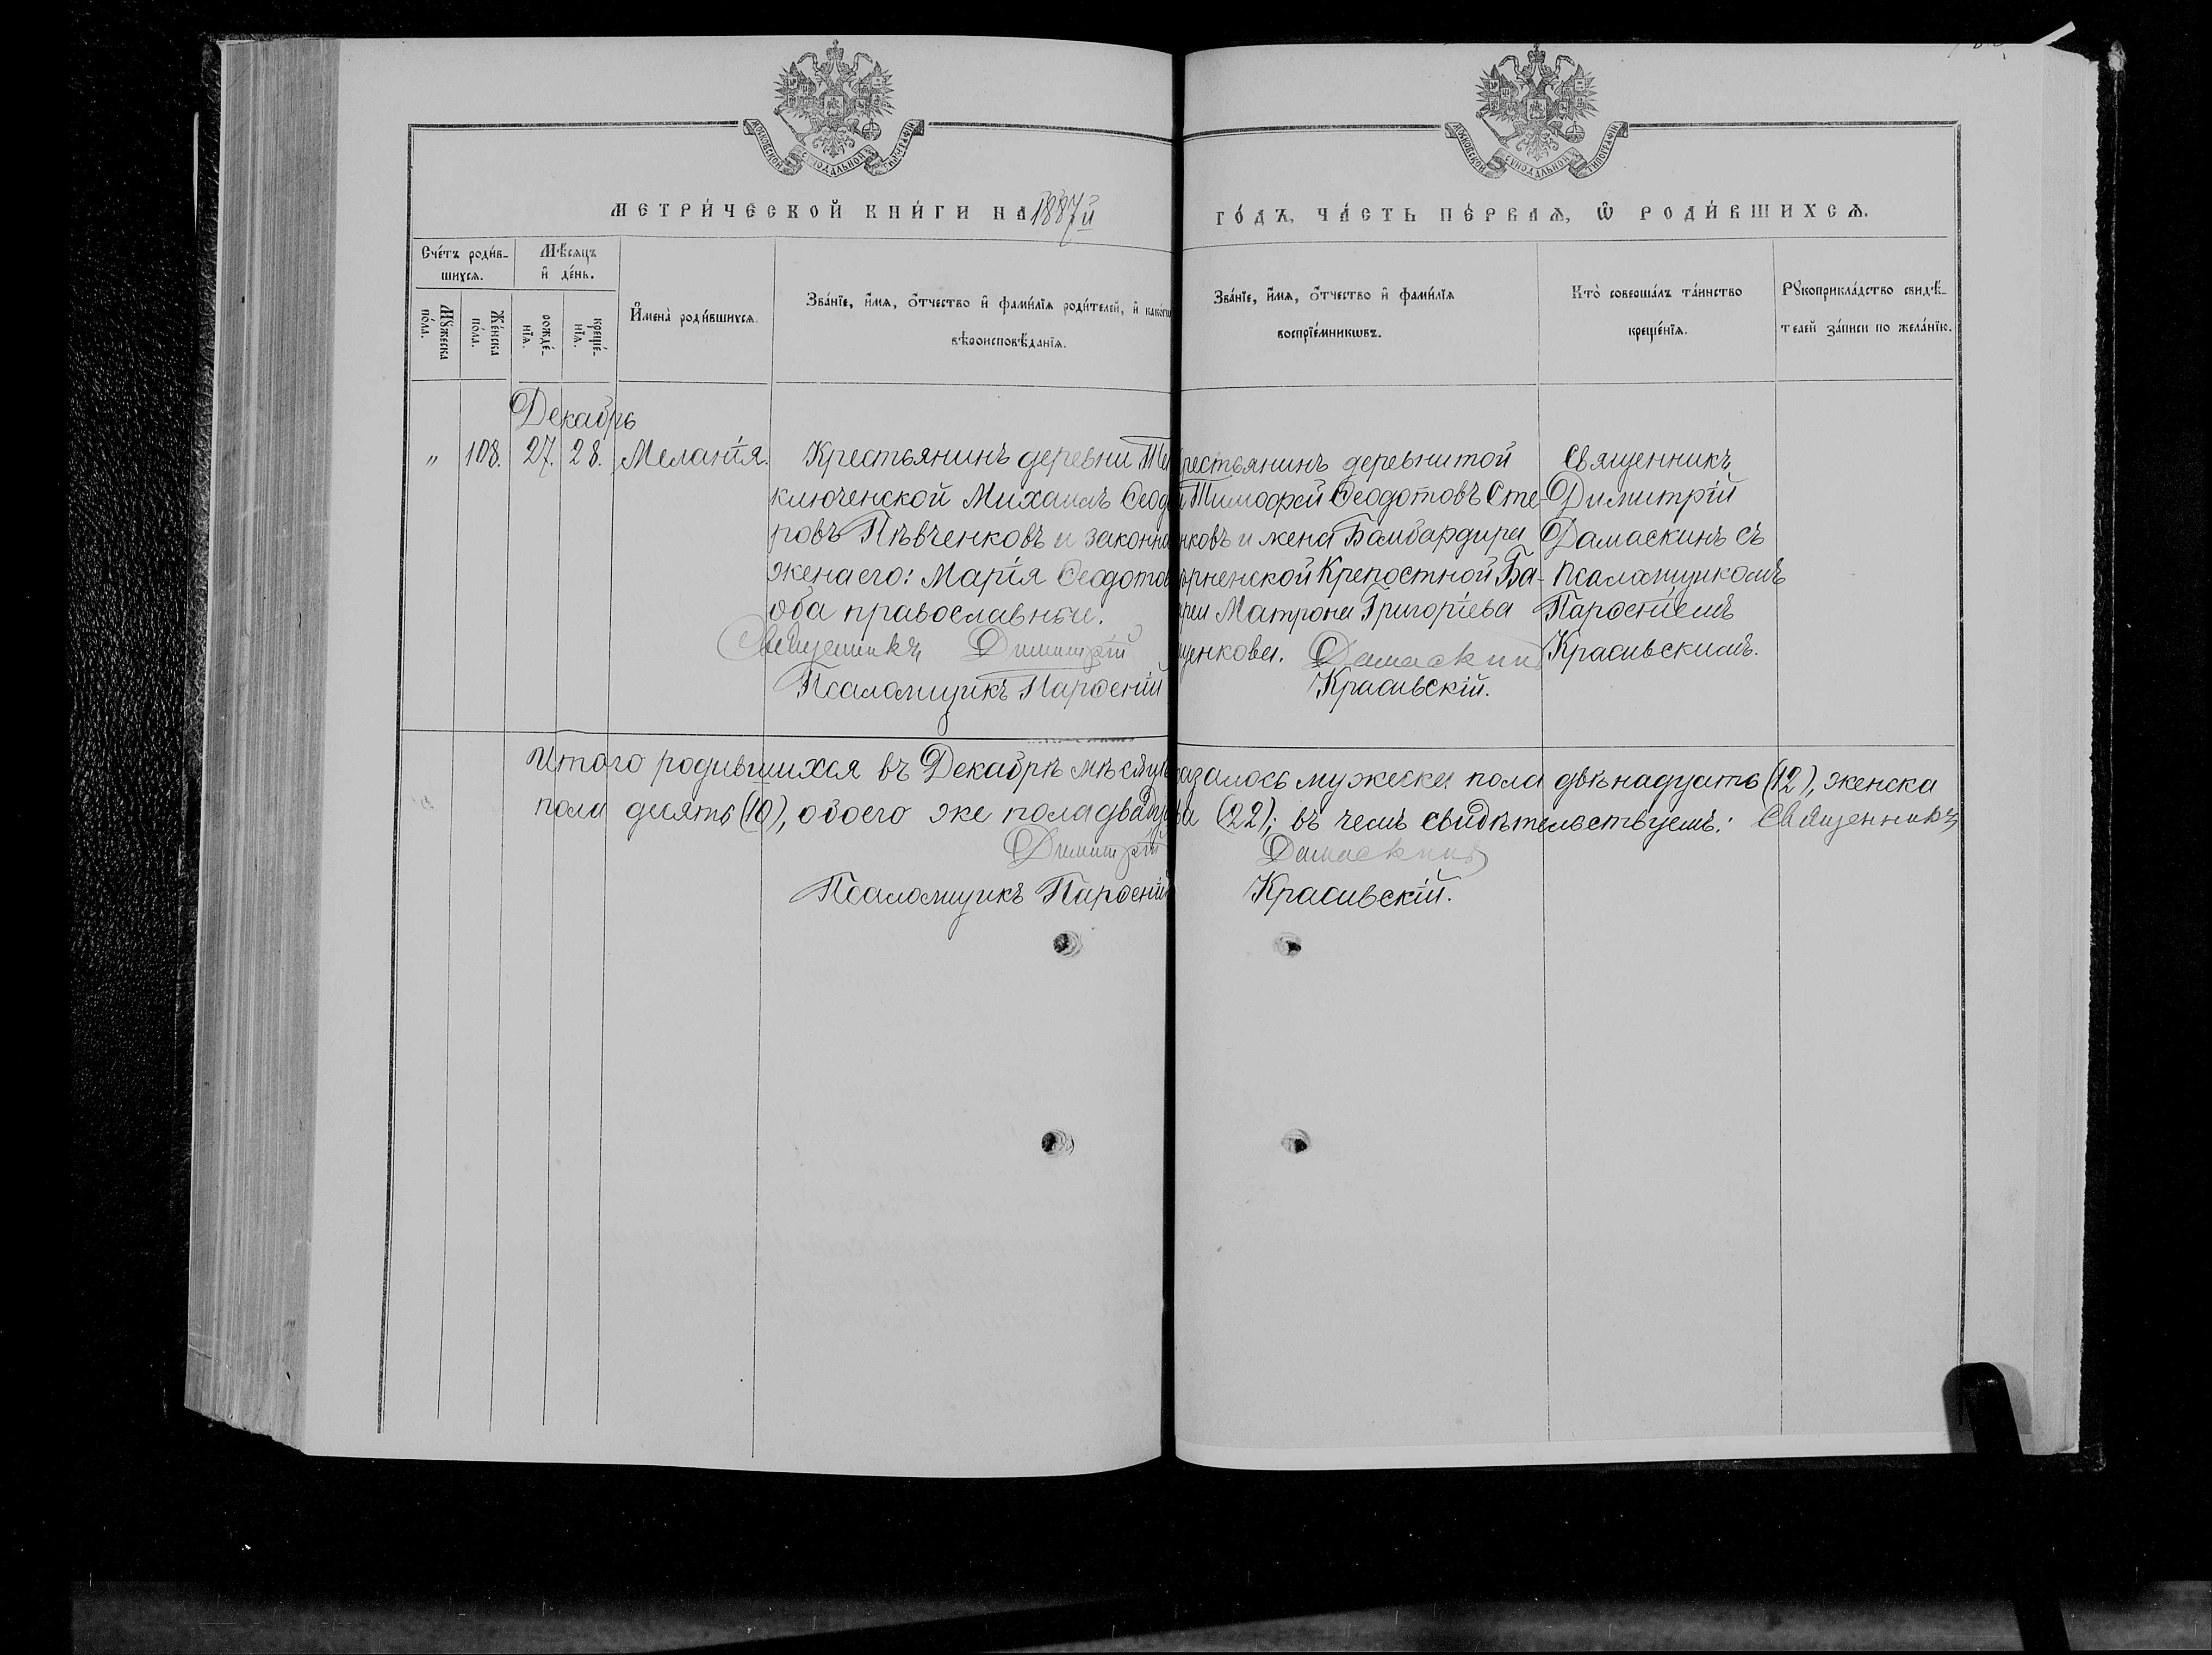 МОСКОВСКОЙ СѴНОДАЛЬНОЙ ТИПОГРАФІИ
МОСКОВСКОЙ СѴНОДАЛЬНОЙ ТИПОГРАФІИ
МЕТРИ́ЧЕСКОЙ КНИ́ГИ НА 1887й ГО́ДЪ, ЧА́СТЬ ПЕ́РВАѦ, Ѡ҆ РОДИ́ВШИХСѦ.
Сче́тъ роди́в-
шихсѧ.
Мѣ́сяцъ
и҆ де́нь.
Мꙋ́жеска
по́ла.
Же́нска
по́ла.
рожде́-
нїѧ.
креще́-
нїѧ.
И҆мена̀ роди́вшихсѧ.
Зва́нїе, и҆́мѧ, ѻ҆́тчество и҆ фами́лїѧ роди́телей, и҆ како́гѡ
вѣроисповѣ́данїѧ.
Зва́нїе, и҆́мѧ, ѻ҆́тчество и҆ фами́лїѧ
воспрїе́мникѡвъ.
Кто̀ соверша́лъ та́инство
креще́нїѧ.
Рꙋкоприкла́дство свидѣ́-
телей за́писи по жела́нїю.
Декабрь
" 108. 27. 28. Меланія.
Крестьянинъ деревни
ключенской Михаилъ Ѳеод
ровъ Пѣвченковъ и законна
жена его: Марія Ѳеодотов
оба православные.
Священникъ Димитрій
Псаломщикъ Парѳеній
рестьянинъ деревни той
Тимоѳей Ѳеодотовъ Сте-
нковъ и жена Бомбардира
рненской Крепостной Ба-
реи Матрона Григоріева
щенкова. Дамаскинъ
Красивскій.
Священникъ
Димитрій
Дамаскинъ съ
псаломщикомъ
Парѳеніемъ
Красивскимъ.
Итого родившихся въ Декабрѣ мѣсяцѣ казалось мужеска пола двѣнадцать (12), женска
пола десять (10), обоего же пола двадц ва (22); въ чемъ свидѣтельствуемъ: Священникъ
Димитрій Дамаскинъ
Псаломщикъ Парѳеній Красивскій.